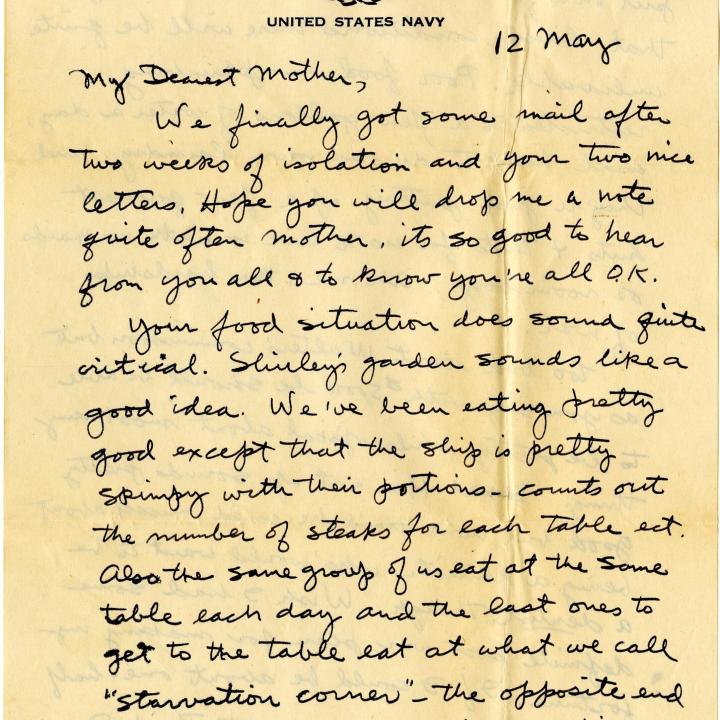 UNITED STATES NAVY
12 May
My Dearest Mother,
We finally got some mail after
two weeks of isolation and your two nice
letters. Hope you will drop me a note
quite often Mother, its so good to hear
from you all & to know you're all O.K.
Your food situation does sound quite
critical. Shirley's garden sounds like a
good idea. We've been eating pretty
good except that the ship is pretty
skimpy with their portions - counts out
the number of steaks for each table ect.
Also the same group of us eat at the same
table each day and the last ones to
get to the table eat at what we call
"starvation corner" - the opposite end